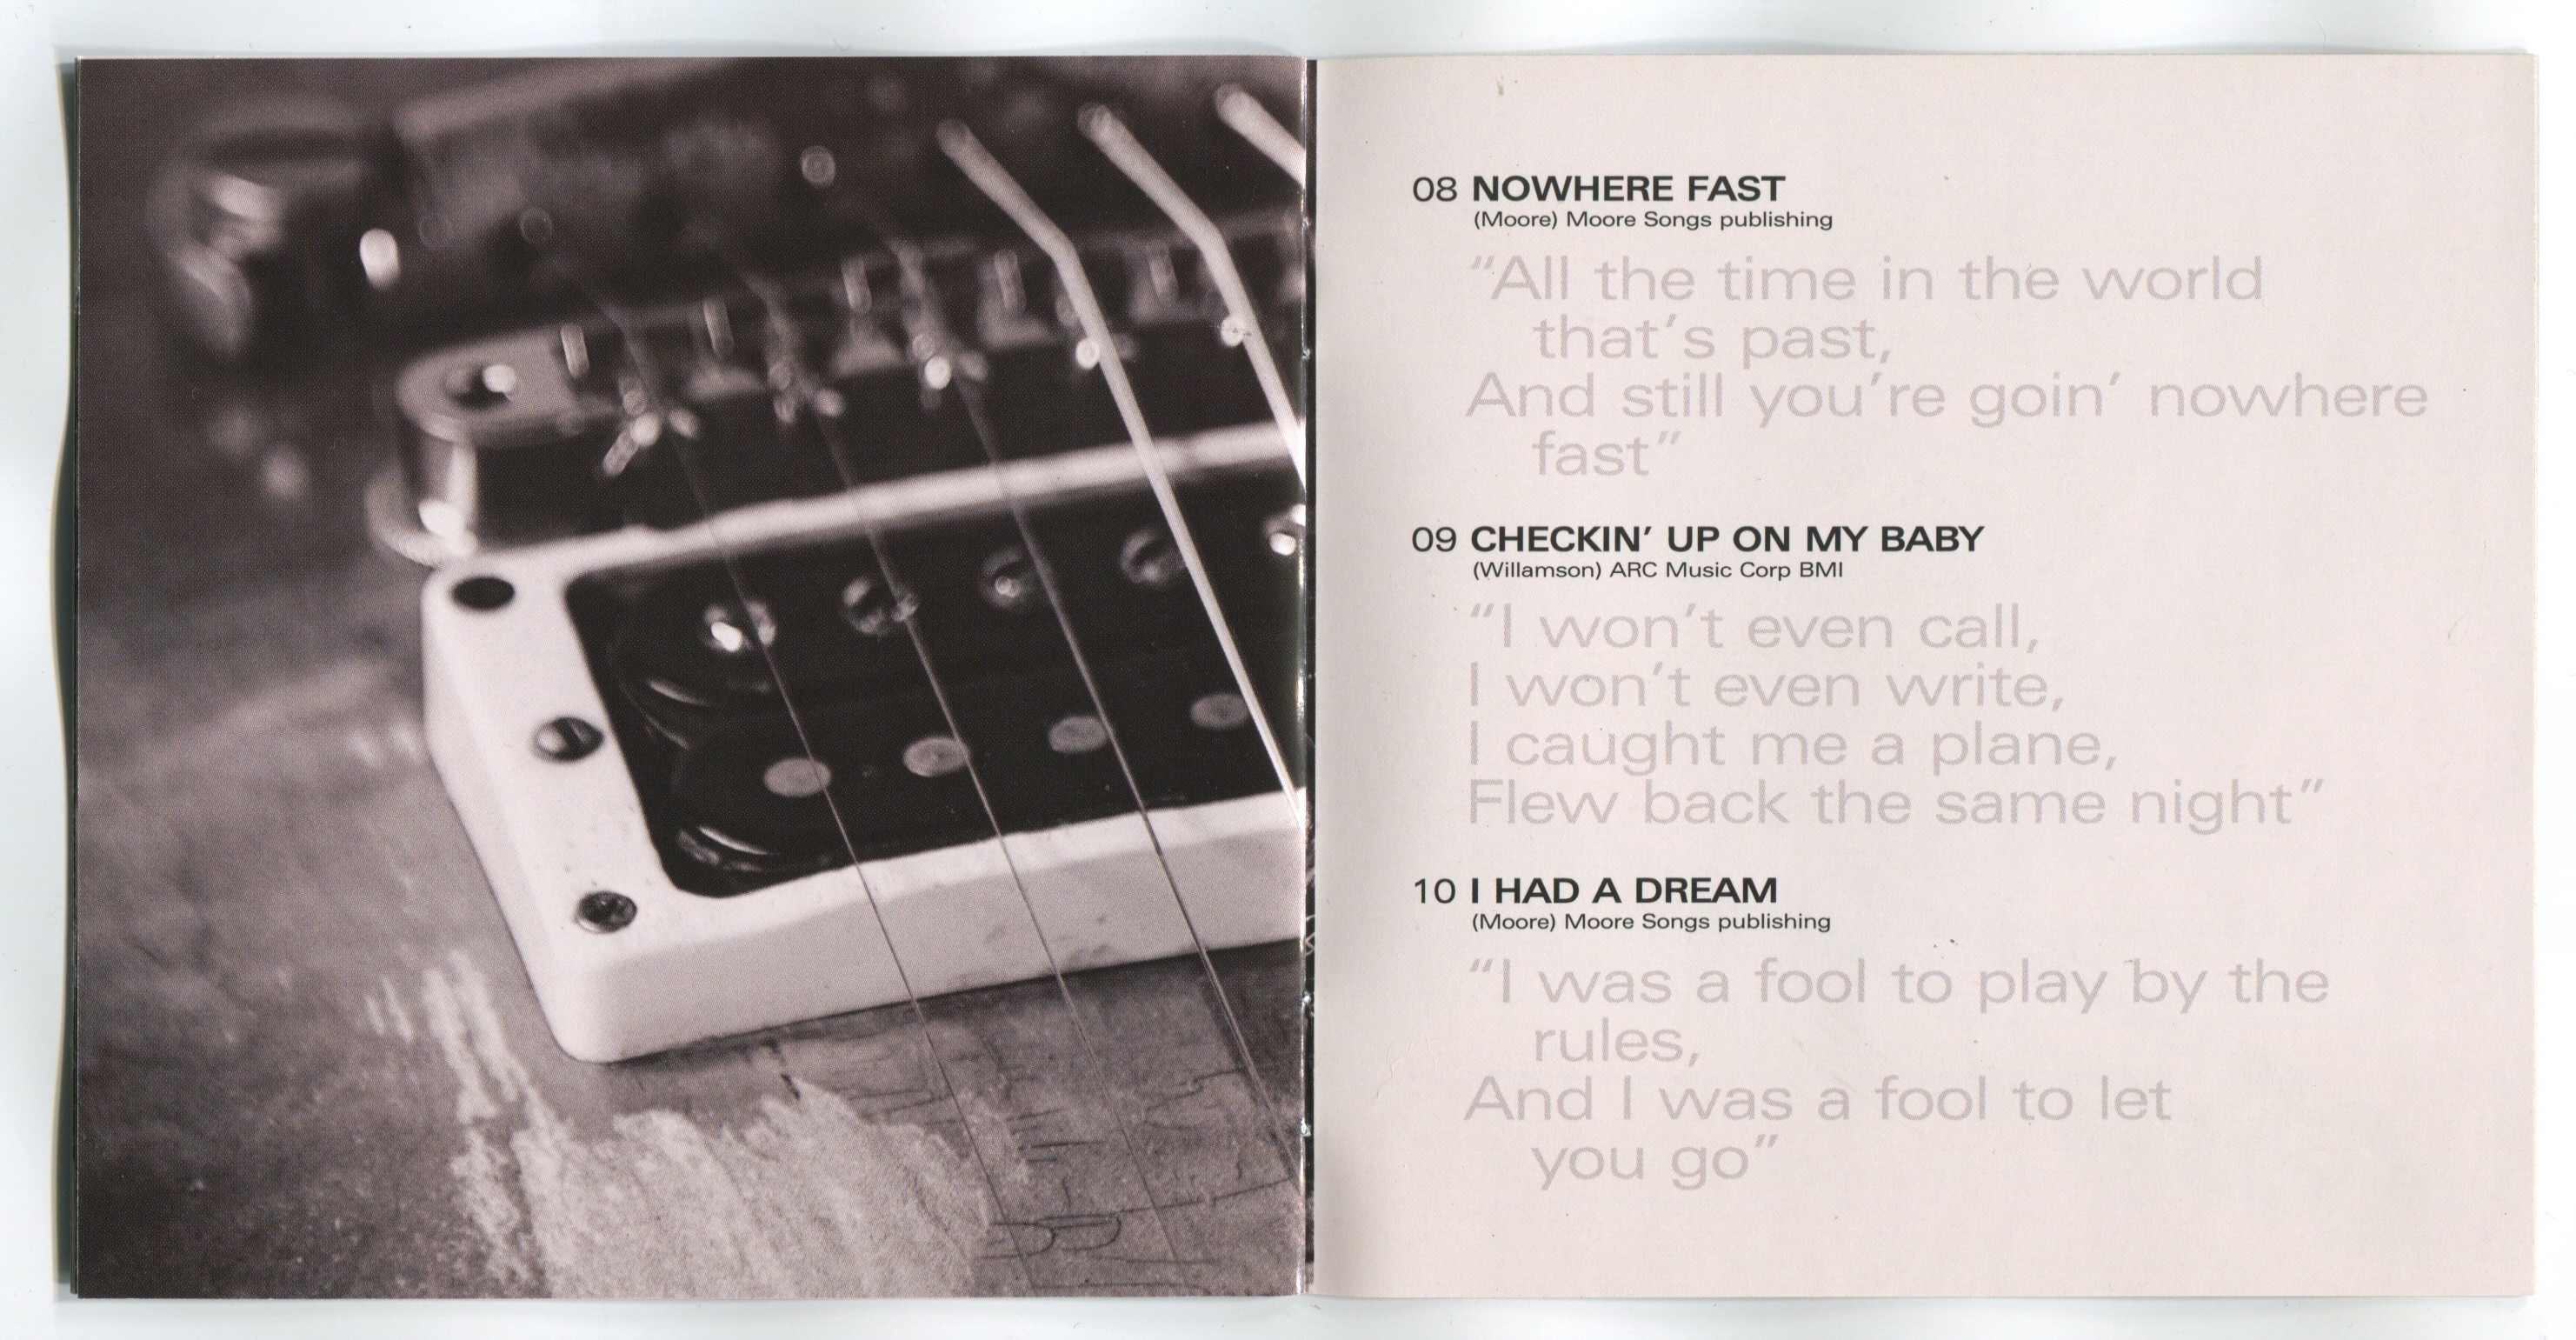 08 NOWHERE FAST
(Moore) Moore Songs publishing
“All the time in the world
that’s past,
And still you’re goin’ nowhere
fast”
09 CHECKIN’ UP ON MY BABY
(Willamson) ARC Music Corp BMI
“I won’t even call,
I won’t even write,
I caught me a plane,
Flew back the same night”
10 I HAD A DREAM
(Moore) Moore Songs publishing
“I was a fool to play by the
rules,
And I was a fool to let
you go”